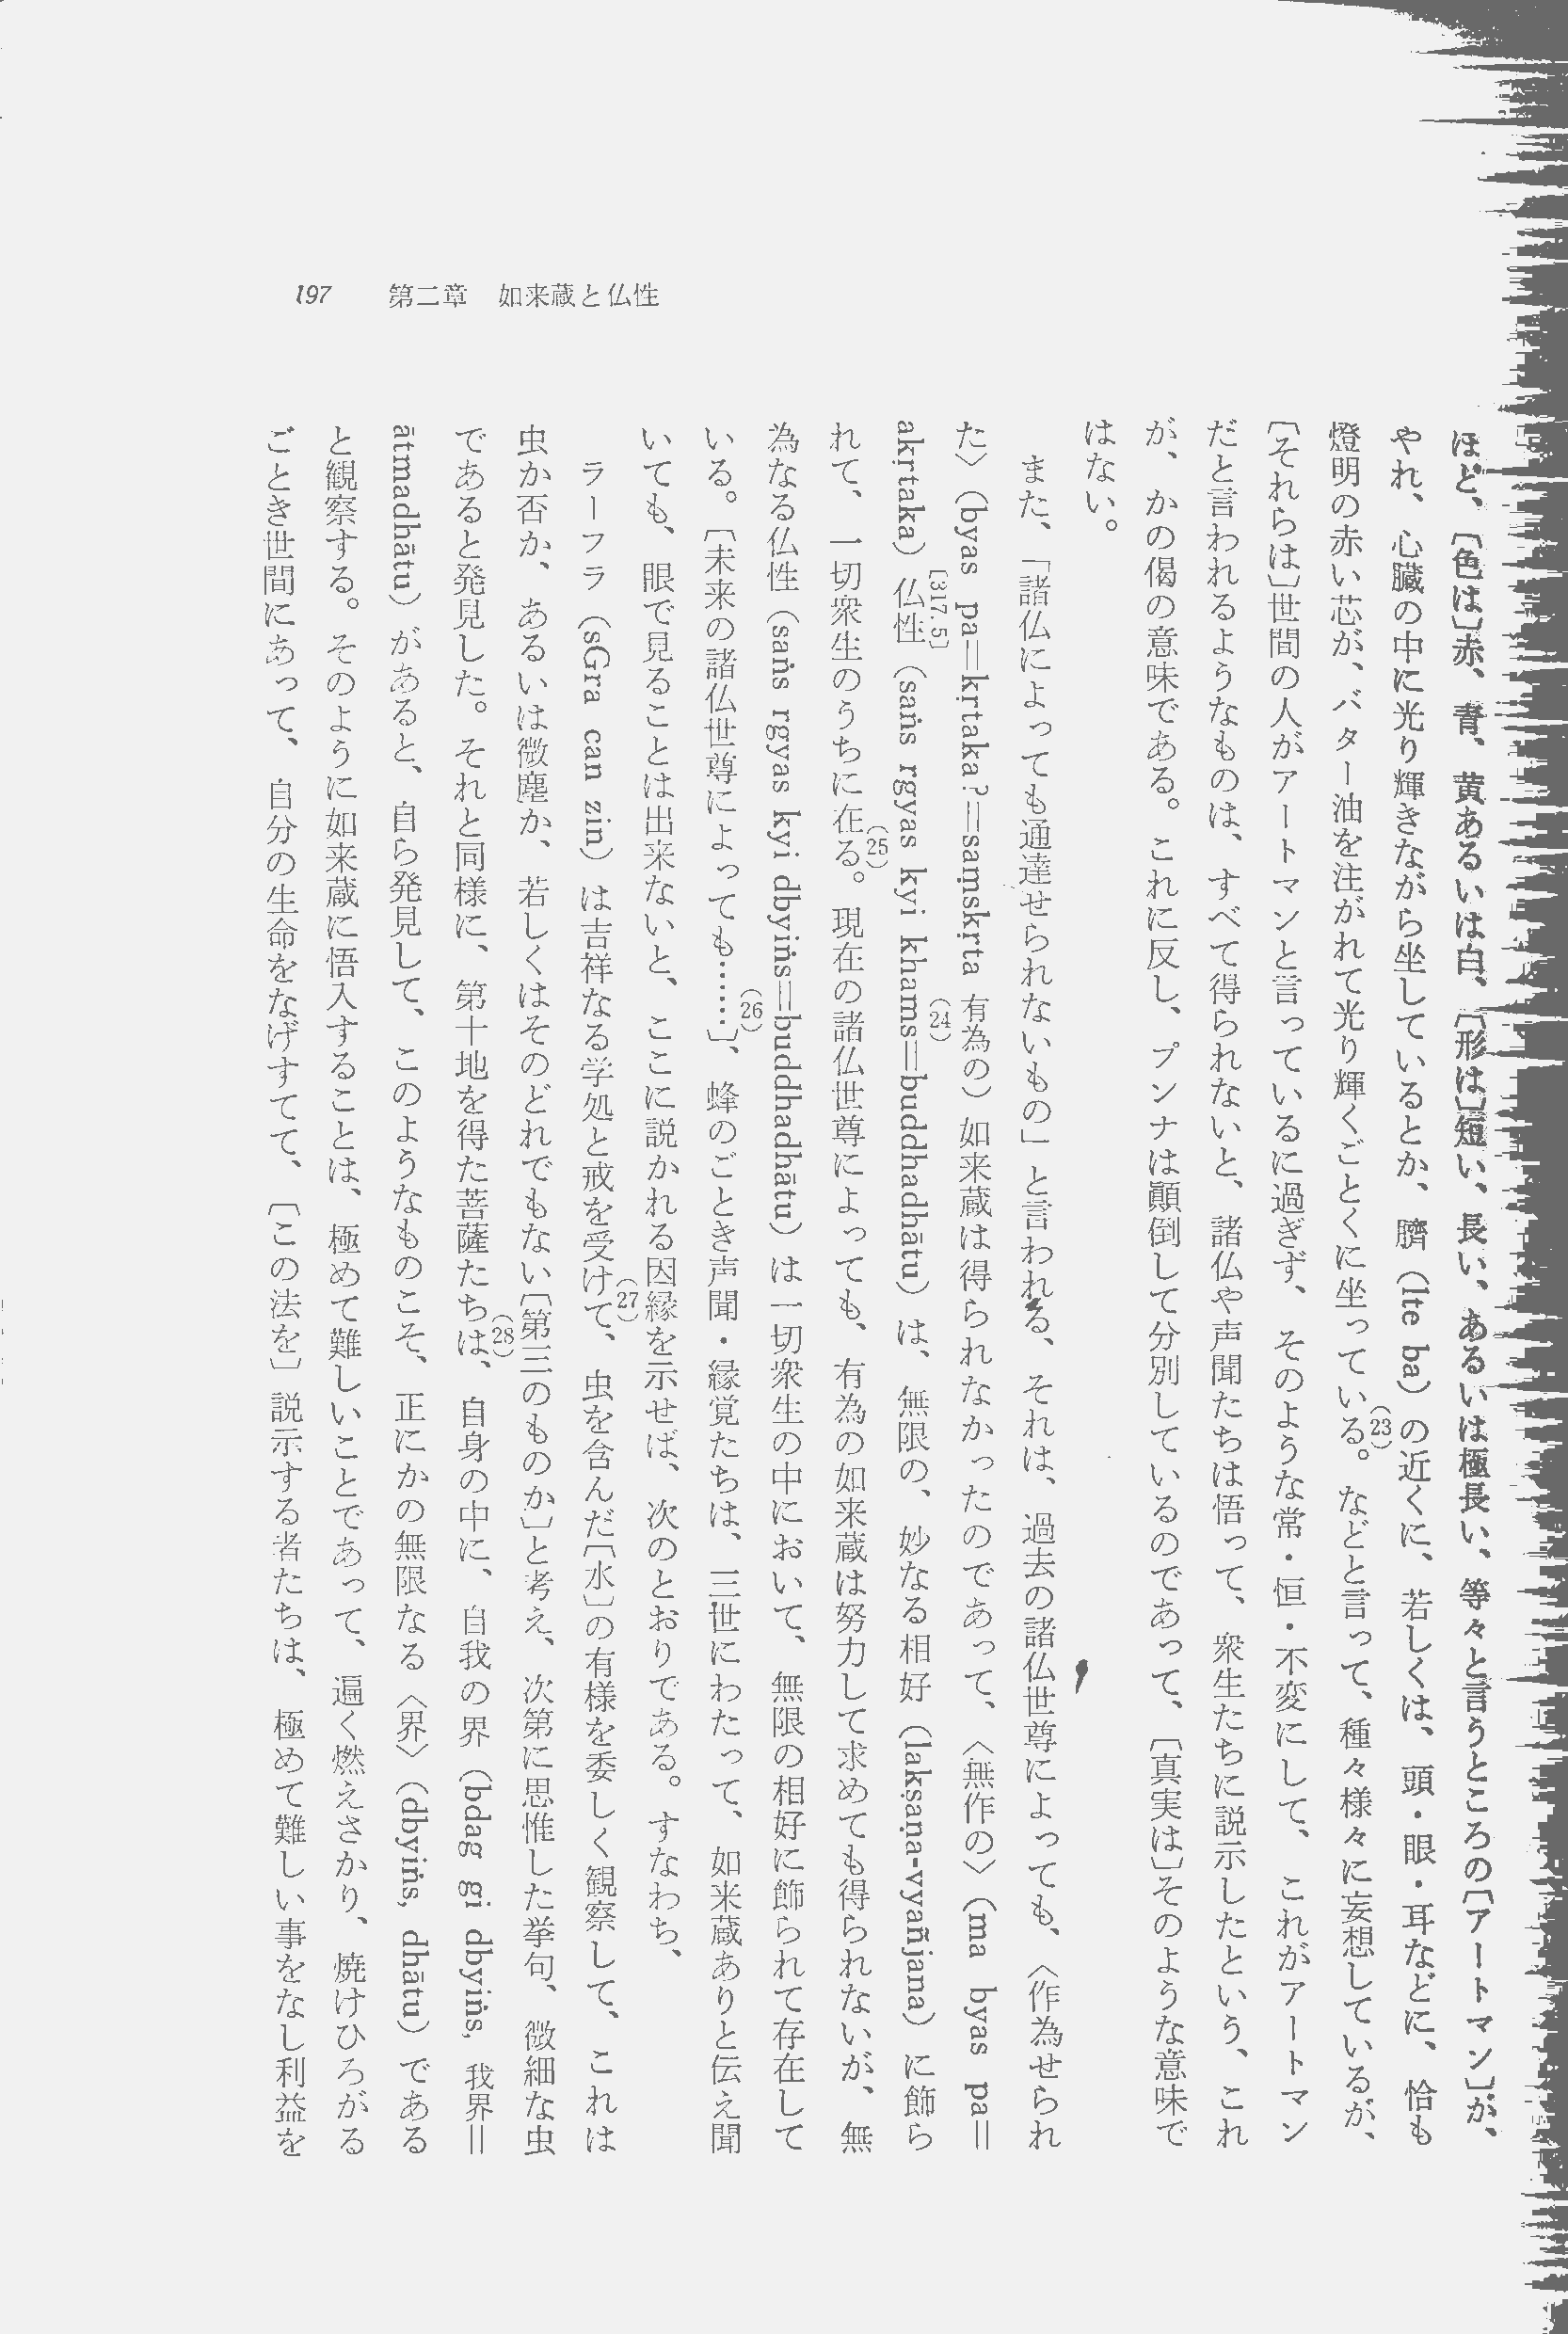 197　第二章　如来蔵と仏性
ほど、〔色は〕赤、青、黄あるいは白、〔形は〕短い、長い、あるいは極長い、等々と言うところの〔アートマン〕が、
やれ、心臓の中に光り輝きながら坐しているとか、臍（lte ba）の近くに、若しくは、頭・眼・耳などに、恰も
燈明の赤い芯が、バター油を注がれて光り輝くごとくに坐っている。(23)などと言って、種々様々に妄想しているが、
〔それらは〕世間の人がアートマンと言っているに過ぎず、そのような常・恒・不変にして、これがアートマン
だと言われるようなものは、すべて得られないと、諸仏や声聞たちは悟って、衆生たちに説示したという、これ
が、かの偈の意味である。これに反し、プンナは顚倒して分別しているのであって、〔真実は〕そのような意味で
はない。
また、「諸仏によっても通達せられないもの」と言われる、それは、過去の諸仏世尊によっても、〈作為せられ
た〉（byas pa＝kṛtaka?＝saṃskṛta 有為の）如来蔵は得られなかったのであって、〈無作の〉（ma byas pa＝
akṛtaka）仏性[317.5]（saṅs rgyas kyi khams(24)＝buddhadhātu）は、無限の、妙なる相好（lakṣaṇa-vyañjana）に飾ら
れて、一切衆生のうちに在る。(25)現在の諸仏世尊によっても、有為の如来蔵は努力して求めても得られないが、無
為なる仏性（saṅs rgyas kyi dbyiṅs＝buddhadhātu）は一切衆生の中において、無限の相好に飾られて存在して
いる。〔未来の諸仏世尊によっても……〕(26)、蜂のごとき声聞・縁覚たちは、三世にわたって、如来蔵ありと伝え聞
いても、眼で見ることは出来ないと、ここに説かれる因縁を示せば、次のとおりである。すなわち、
ラーフラ（sGra can zin）は吉祥なる学処と戒を受けて(27)、虫を含んだ〔水〕の有様を委しく観察して、これは
虫か否か、あるいは微塵か、若しくはそのどれでもない〔第三のものか〕と考え、次第に思惟した挙句、微細な虫
であると発見した。それと同様に、第十地を得た菩薩たちは(28)、自身の中に、自我の界（bdag gi dbyiṅs, 我界＝
ātmadhātu）があると、自ら発見して、このようなものこそ、正にかの無限なる〈界〉（dbyiṅs, dhātu）である
と観察する。そのように如来蔵に悟入することは、極めて難しいことであって、遍く燃えさかり、焼けひろがる
ごとき世間にあって、自分の生命をなげすてて、〔この法を〕説示する者たちは、極めて難しい事をなし利益を